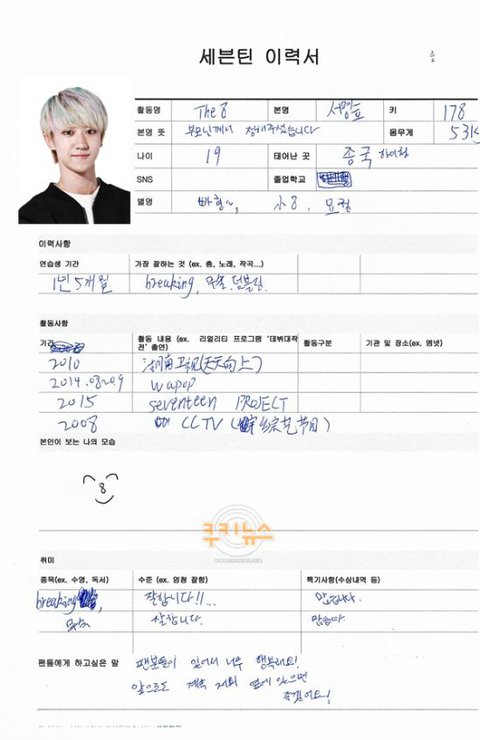 세븐틴 이력서
활동명 The 8 본명 서명호 키 178
본명 뜻 부모님께서 정해주셨습니다 몸무게 53kg
나이 19 태어난 곳 중국
SNS 졸업학교
별명 小8, 요정
이력사항
연습생 기간 가장 잘하는 것 (ex. 춤, 노래, 작곡...)
1년 5개월 breaking, 무술, 텀블링
활동사항
기간 활동 내용 (ex. 리얼리티 프로그램 '데뷔대작전' 출연) 활동구분 기관 및 장소(ex. 엠넷)
2010 湖南卫视(天天向上)
2014.08.20.9 wapop
2015 seventeen PROJECT
2008 CCTV (综艺节目)
본인이 보는 나의 모습
8
쿠키뉴스
취미
종목(ex. 수영, 독서) 수준 (ex. 엄청 잘함) 특기사항(수상내역 등)
breaking, 잘합니다!!... 없습니다.
무술 잘합니다.
팬들에게 하고싶은 말 팬분들이 있어서 너무 행복해요!
앞으로도 계속 저희 옆에 있으면
좋겠어요!